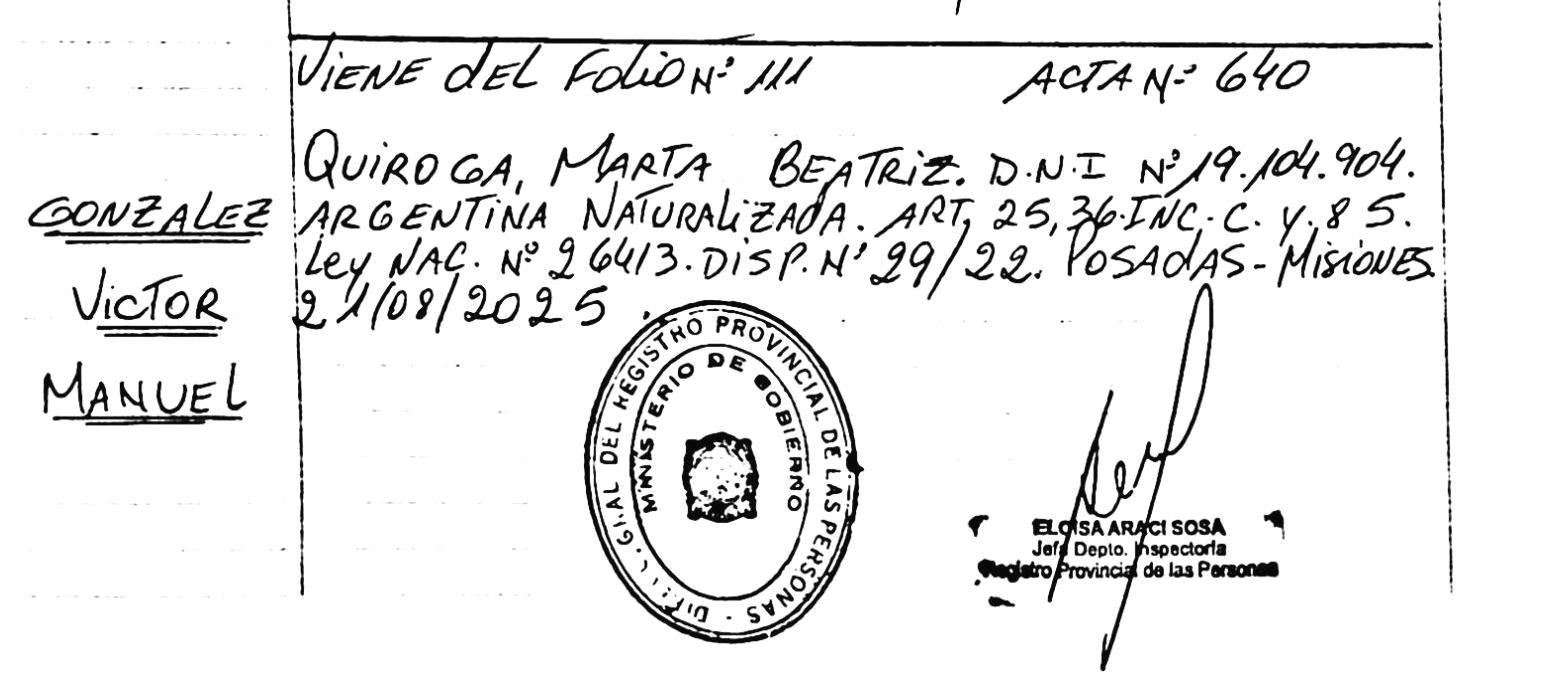 VIENE dEL FoLiO Nº 111 ACTA Nº 640
QUIROGA, MARTA BEATRIZ. D.N.I Nº 19.104.904.
GONZALEZ ARGENTINA NATURALIZADA. ART, 25, 36. INC. C. Y. 85.
Ley NAC. Nº 26413. DISP. Nº 29/22. POSADAS - MISIONES
VICTOR 21/08/2025.
MANUEL
GRAL DEL REGISTRO PROVINCIAL DE LAS PERSONAS -
MINISTERIO DE GOBIERNO
ELOISA ARACI SOSA
Jefa Depto. Inspectoría
Registro Provincial de las Personas